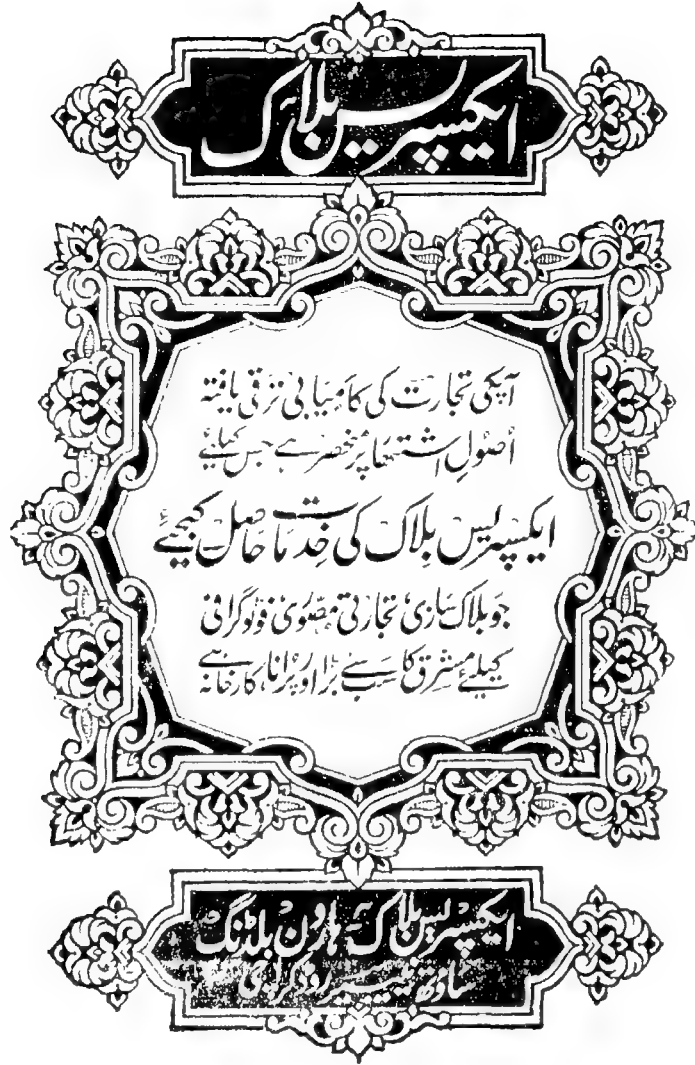 ایکسپریس بلاک
آپکی تجارت کی کامیابی ترقی یافتہ
اصولِ اشتہار پر منحصر ہے جس کیلئے
ایکسپریس بلاک کی خدمات حاصل کیجیئے
جو بلاک سازی تجارتی مصوّری فوٹوگرافی
کیلئے مشرق کا سب سے بڑا اور پرانا کارخانہ ہے
ایکسپریس بلاک ہارون بلڈنگ
ساؤتھ نیپیر روڈ کراچی